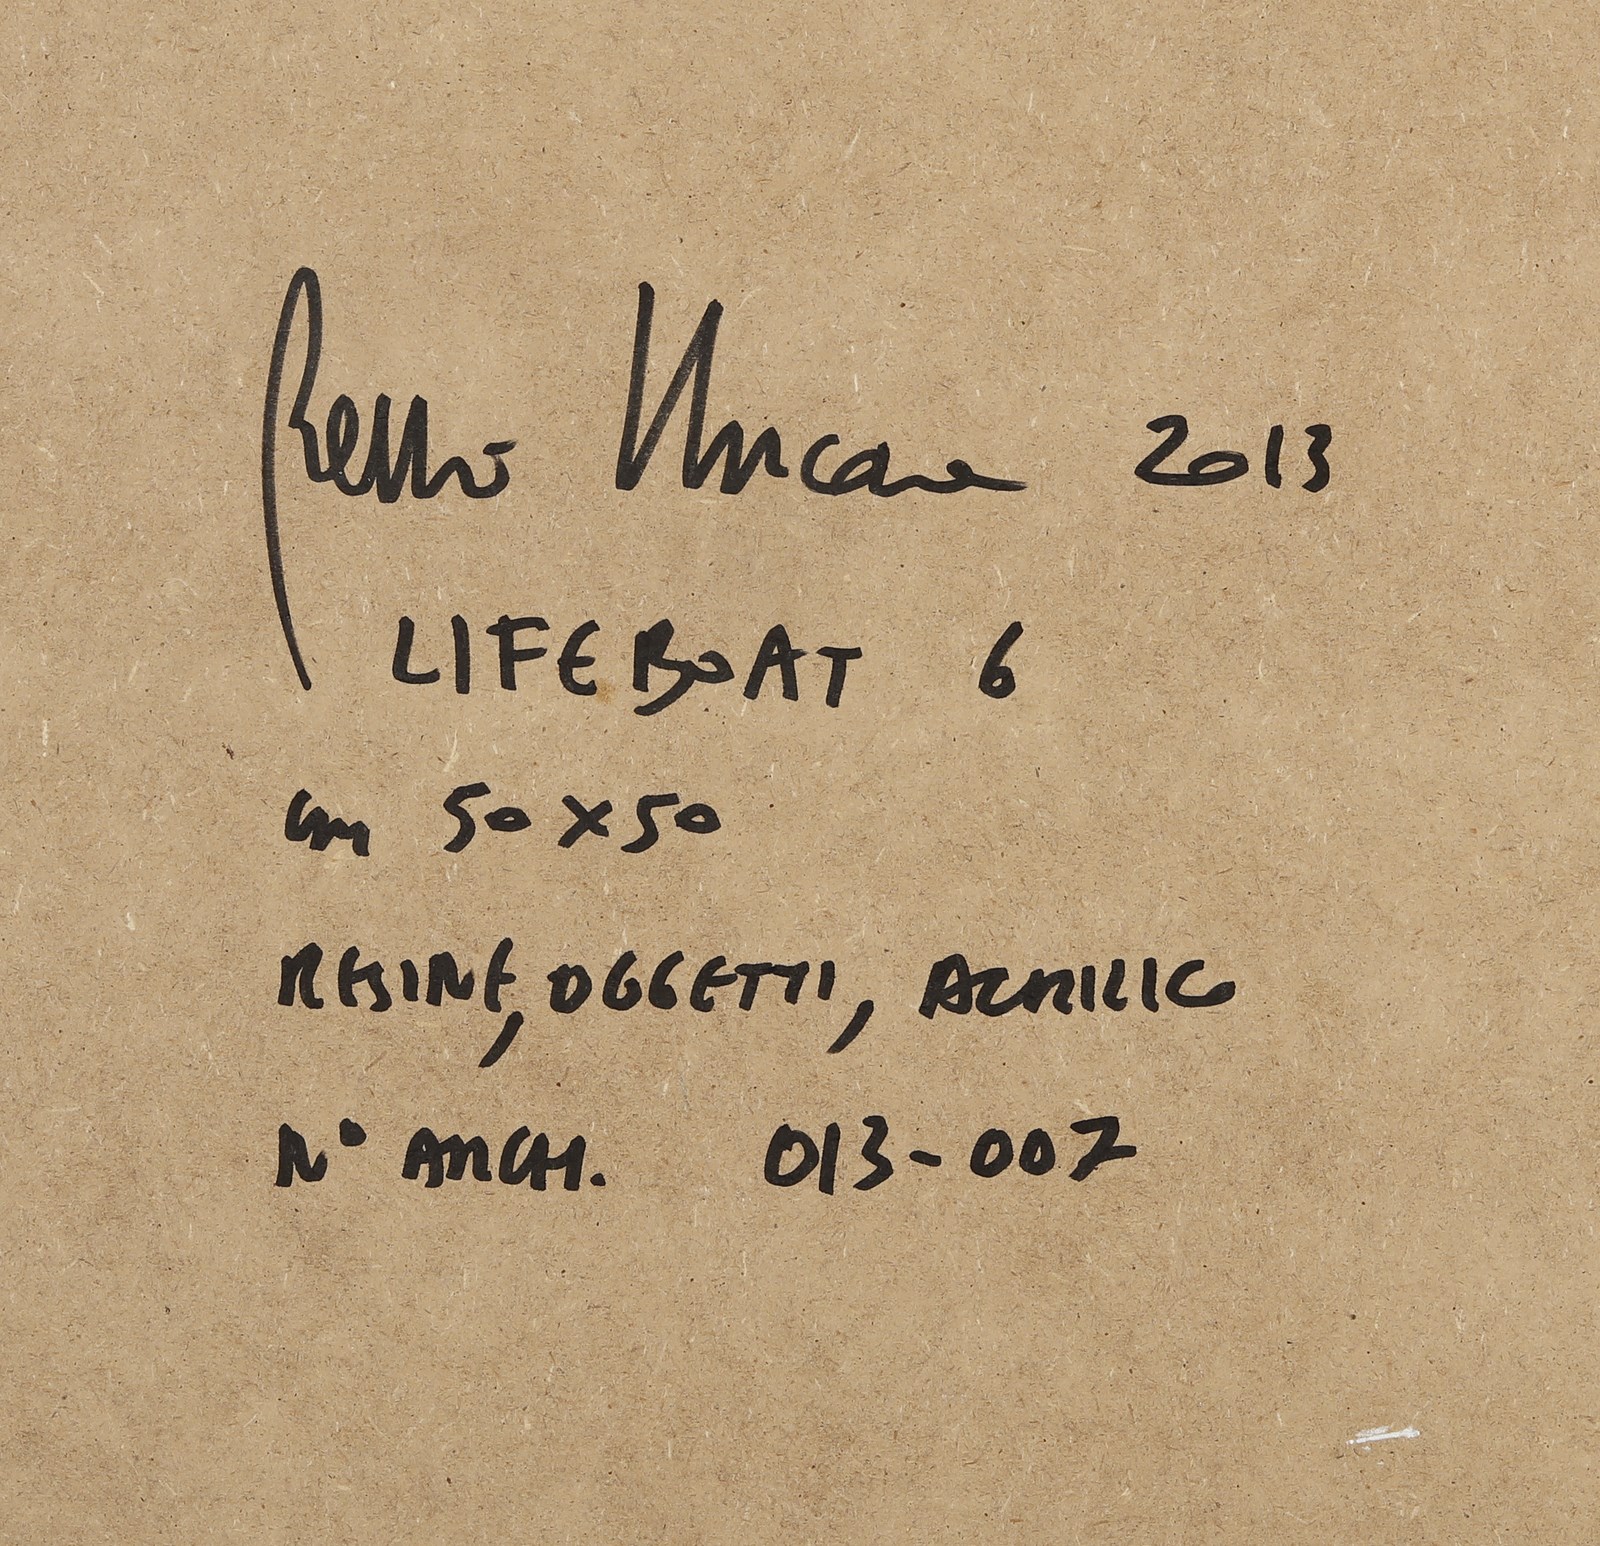 2013
LIFEBOAT 6
cm 50x50
RESINE, OGGETTI, ACRILICO
N° ARCH. 013-007